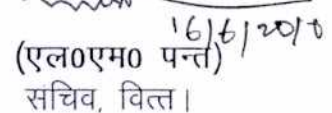 16/6/2010
(एल0एम0 पन्त)
सचिव, वित्त।